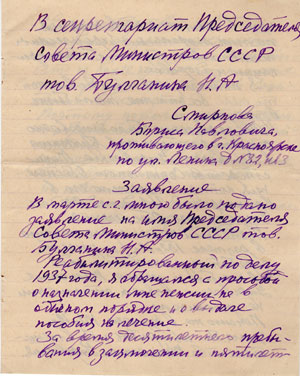 В секретариат Председателя
Совета Министров СССР
тов. Булганина Н.А
Смирнова
Бориса Павловича,
проживающего в г. Красноярске
по ул. Ленина д №32, кв3
Заявление
В марте с.г. мною было подано
заявление на имя Председателя
Совета Министров СССР тов.
Булганина Н.А.
Реабилитированный по делу
1937 года, я обращался с просьбой
о назначении мне пенсии не в
общем порядке и о выдаче
пособия на лечение
За время десятилетнего пребы-
вания в заключении и пятилет